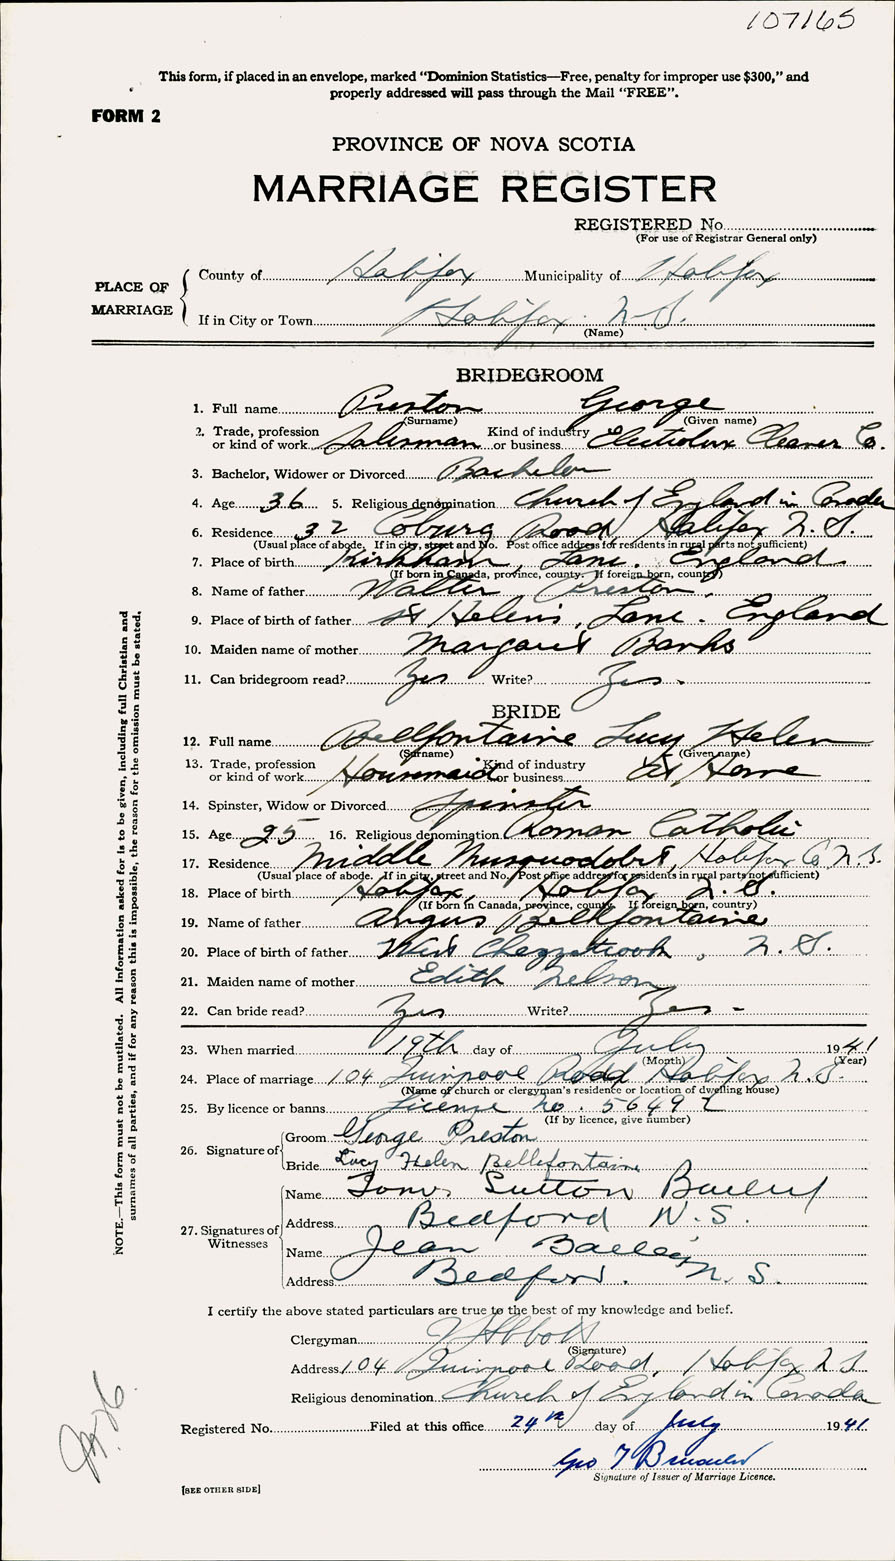 107165
This form, if placed in an envelope, marked "Dominion Statistics—Free, penalty for improper use $300," and
properly addressed will pass through the Mail "FREE".
FORM 2
PROVINCE OF NOVA SCOTIA
MARRIAGE REGISTER
REGISTERED No.
(For use of Registrar General only)
PLACE OF MARRIAGE
County of Halifax Municipality of Halifax
If in City or Town Halifax N.S.
(Name)
BRIDEGROOM
1. Full name Preston George
(Surname) (Given name)
2. Trade, profession or kind of work Salesman Kind of industry or business Electrolux Cleaner Co.
3. Bachelor, Widower or Divorced Bachelor
4. Age 36 5. Religious denomination Church of England in Canada
6. Residence 32 Coburg Road, Halifax N.S.
(Usual place of abode. If in city, street and No. Post office address for residents in rural parts not sufficient)
7. Place of birth Kirkham, Lanc. England
(If born in Canada, province, county. If foreign born, country)
8. Name of father Walter Preston.
9. Place of birth of father St Helens, Lanc. England
10. Maiden name of mother Margaret Banks
11. Can bridegroom read? Yes Write? Yes.
BRIDE
12. Full name Bellfontaine Lucy Helen
(Surname) (Given name)
13. Trade, profession or kind of work Housemaid Kind of industry or business At Home
14. Spinster, Widow or Divorced Spinster
15. Age 25 16. Religious denomination Roman Catholic
17. Residence Middle Musquodobit, Halifax Co N.S.
(Usual place of abode. If in city, street and No. Post office address for residents in rural parts not sufficient)
18. Place of birth Halifax, Halifax N.S.
(If born in Canada, province, county. If foreign born, country)
19. Name of father Angus Bellfontaine
20. Place of birth of father West Chezzetcook, N.S.
21. Maiden name of mother Edith Nelson
22. Can bride read? Yes Write? Yes -
23. When married 19th day of July 1941
(Month) (Year)
24. Place of marriage 104 Quinpool Road Halifax N.S.
(Name of church or clergyman's residence or location of dwelling house)
25. By licence or banns License no. 56492
(If by licence, give number)
26. Signature of
Groom George Preston
Bride Lucy Helen Bellefontaine
27. Signatures of Witnesses
Name Sutton Bailey
Address Bedford N.S.
Name Jean Bailey
Address Bedford. N.S.
I certify the above stated particulars are true to the best of my knowledge and belief.
Clergyman Abbott
(Signature)
Address 104 Quinpool Road, Halifax N.S
Religious denomination Church of England in Canada
Registered No. Filed at this office 24th day of July 1941.
Geo T
Signature of Issuer of Marriage Licence.
[SEE OTHER SIDE]
NOTE.—This form must not be mutilated. All information asked for is to be given, including full Christian and
surnames of all parties, and if for any reason this is impossible, the reason for the omission must be stated.